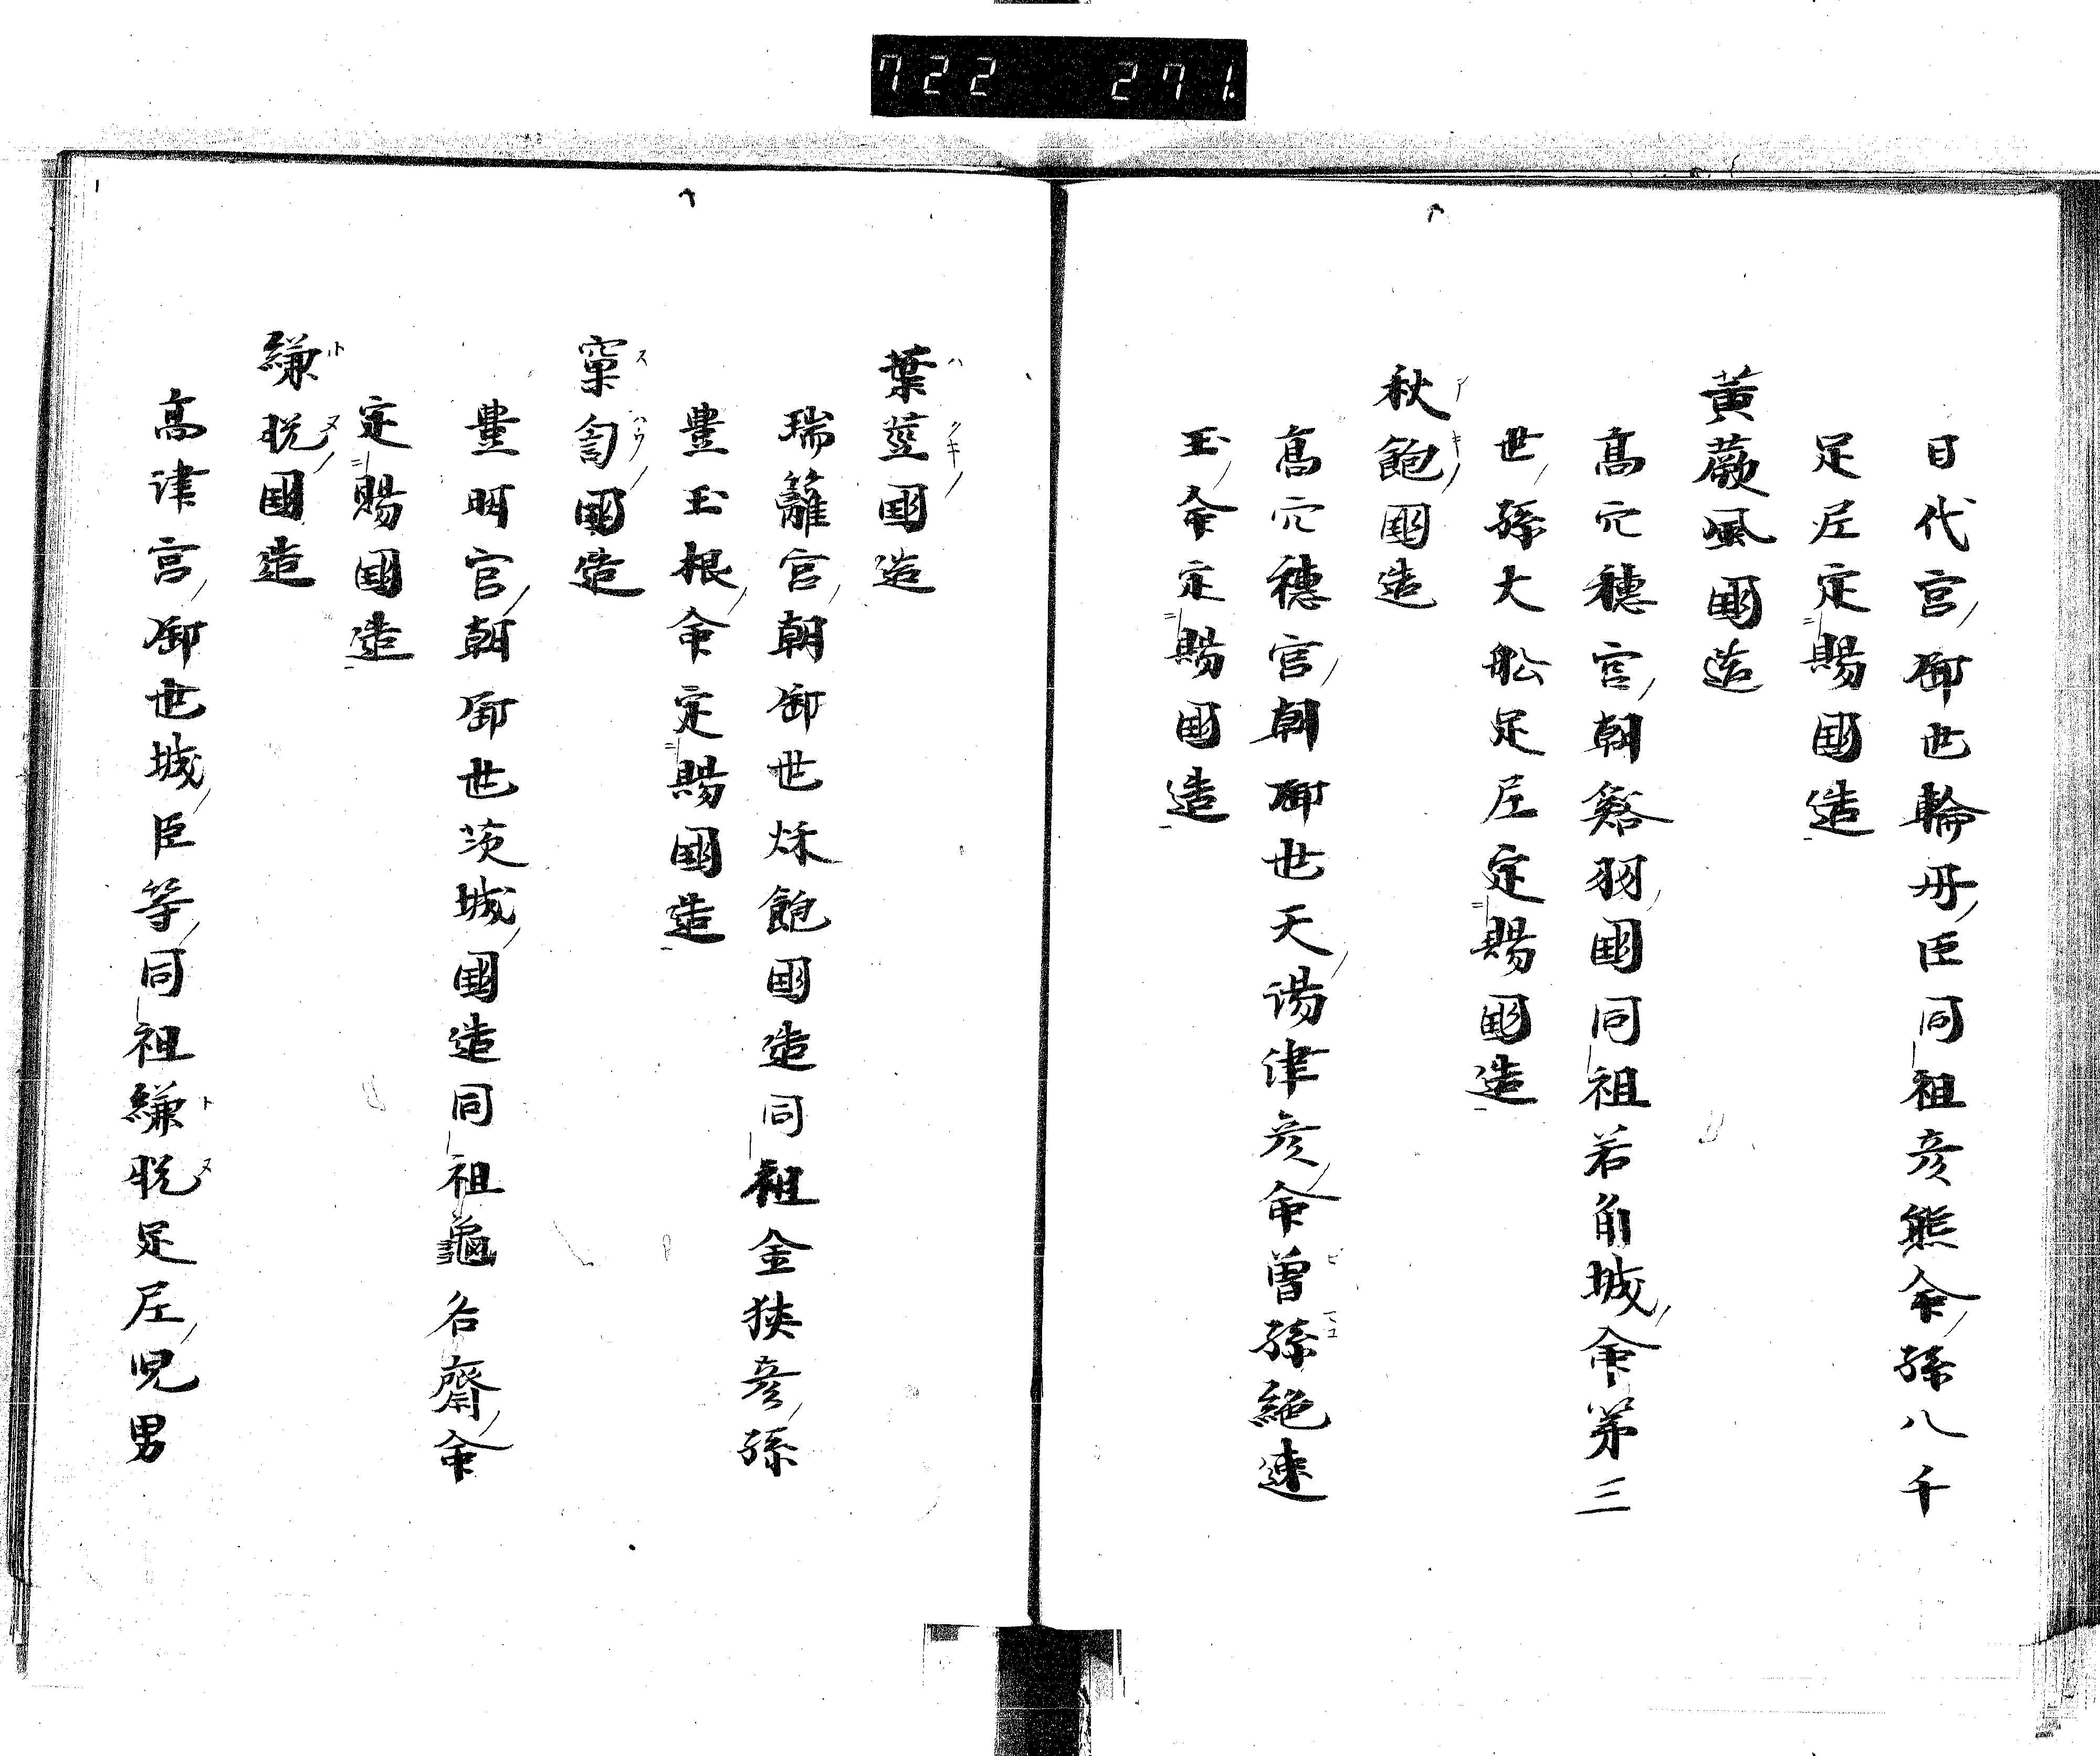 722 271.
日代宮御世輪冊臣同祖彦熊命孫八千
足尼定賜國造
黄蕨風國造
高穴穂宮朝谿羽國同祖若角城命第三
世孫大舩足尼定賜國造
秋飽國造
高穴穂宮朝御世天湯津彦命曽孫絶速
玉命定賜國造
葉莖國造
瑞籬宮朝御世秌飽國造同祖金狭彦孫
豊玉根命定賜國造
窠匎國造
豊明宮朝御世茨城國造同祖龜名齋命
定賜國造
縑脱國造
高津宮御世城臣等同祖縑脱足尼児男